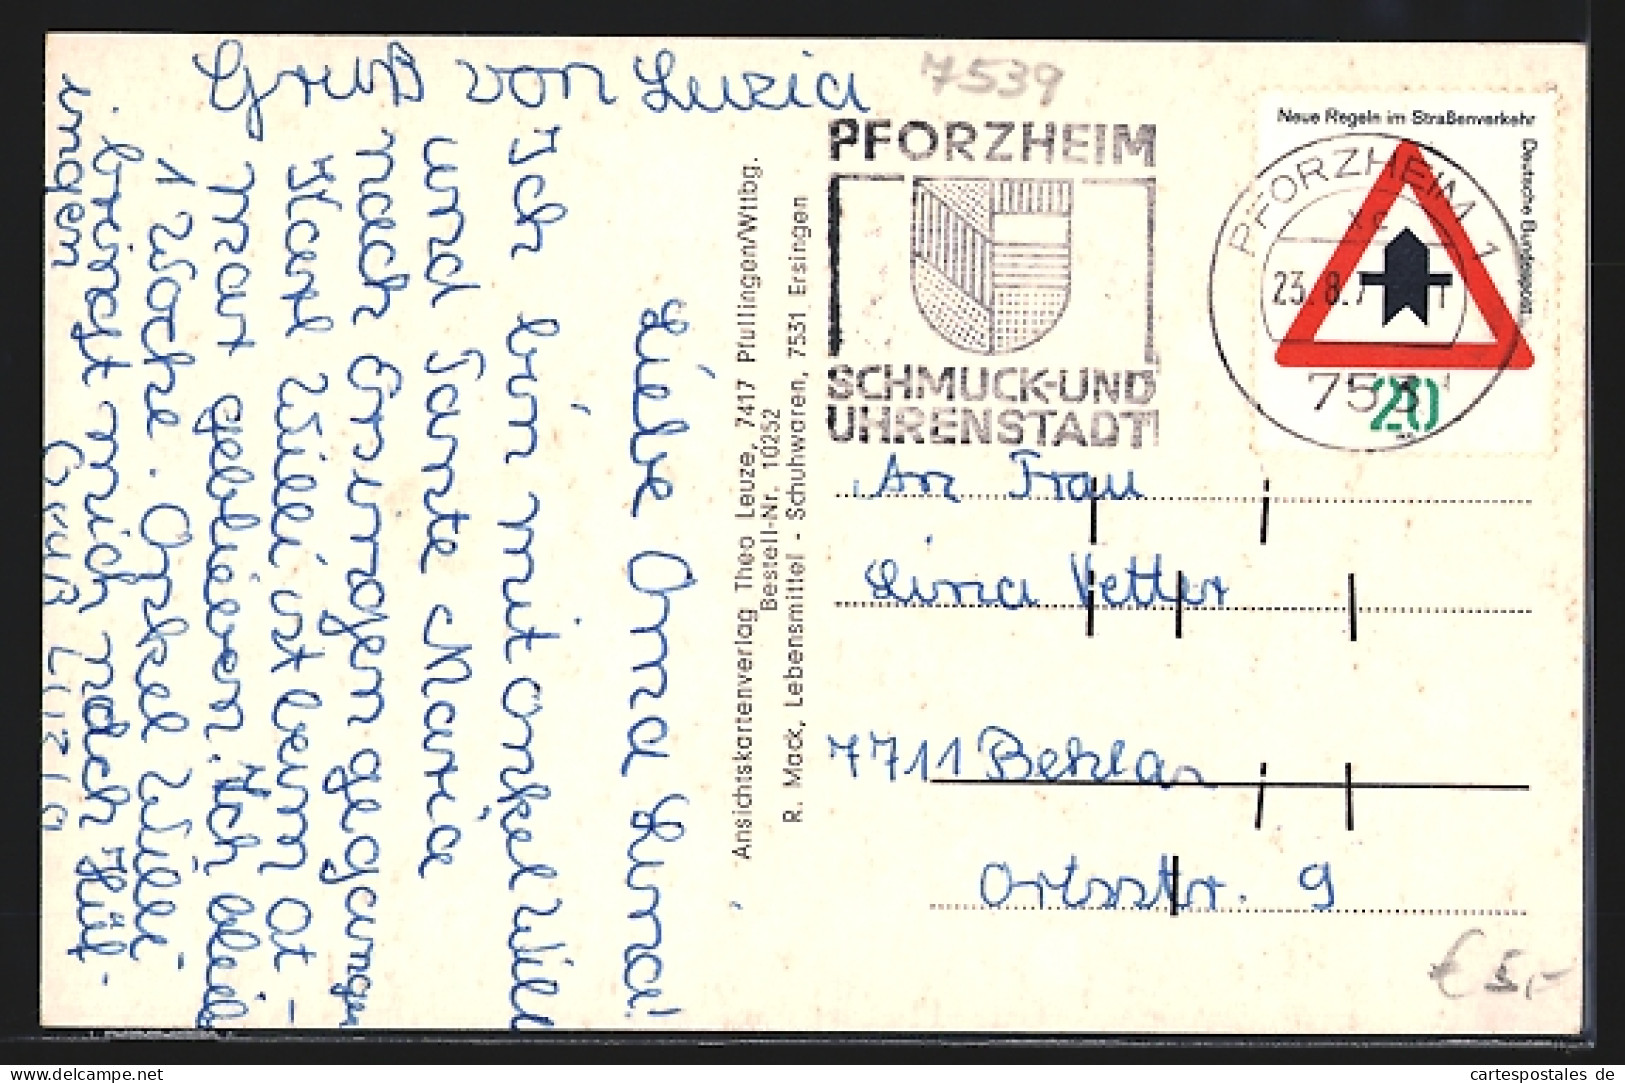 Gruß von Luzia
Liebe Oma Luzia!
Ich bin mit onkel Willi
und Tante Maria
nach Ersingen gegangen
Karl Willi ist beim ot-
mar geblieben. Ich bleib
1 Woche. Onkel Willi
bringt mich nach Hüf-
ingen
Gruß Luzia
Ansichtskartenverlag Theo Leuze, 7417 Pfullingen/Wttbg.
Bestell-Nr. 10252
R. Mack, Lebensmittel - Schuhwaren, 7531 Ersingen
7539
PFORZHEIM
SCHMUCK-UND
UHRENSTADT
Neue Regeln im Straßenverkehr
Deutsche Bundespost
20
PFORZHEIM 1
23.8.7
753
An Frau
Luzia Vetter
7711 Behla
Ortsstr. 9
€ 5,-
www.cartespostales.de
cartespostales de